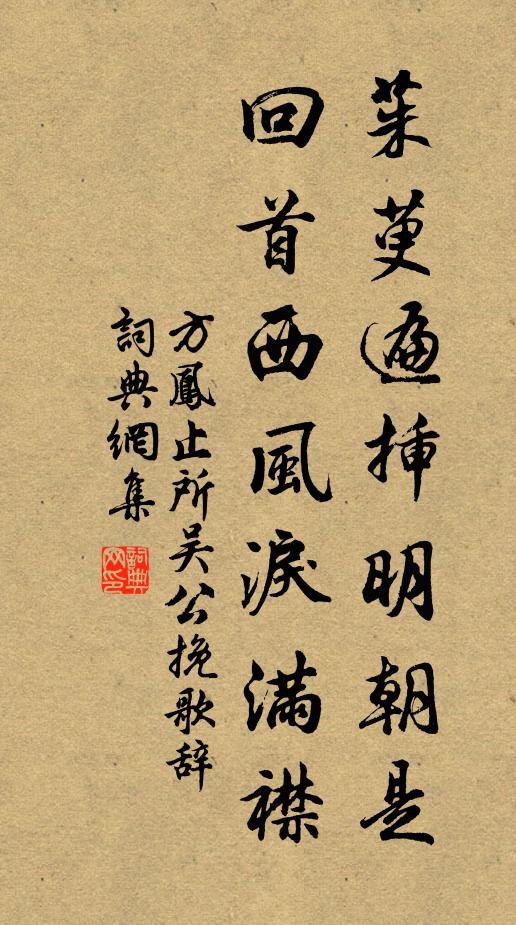 茱萸遍挿明朝是
回首西風淚滿襟
方鳳止所吴公挽歌辞
詞典網集
詞典网印